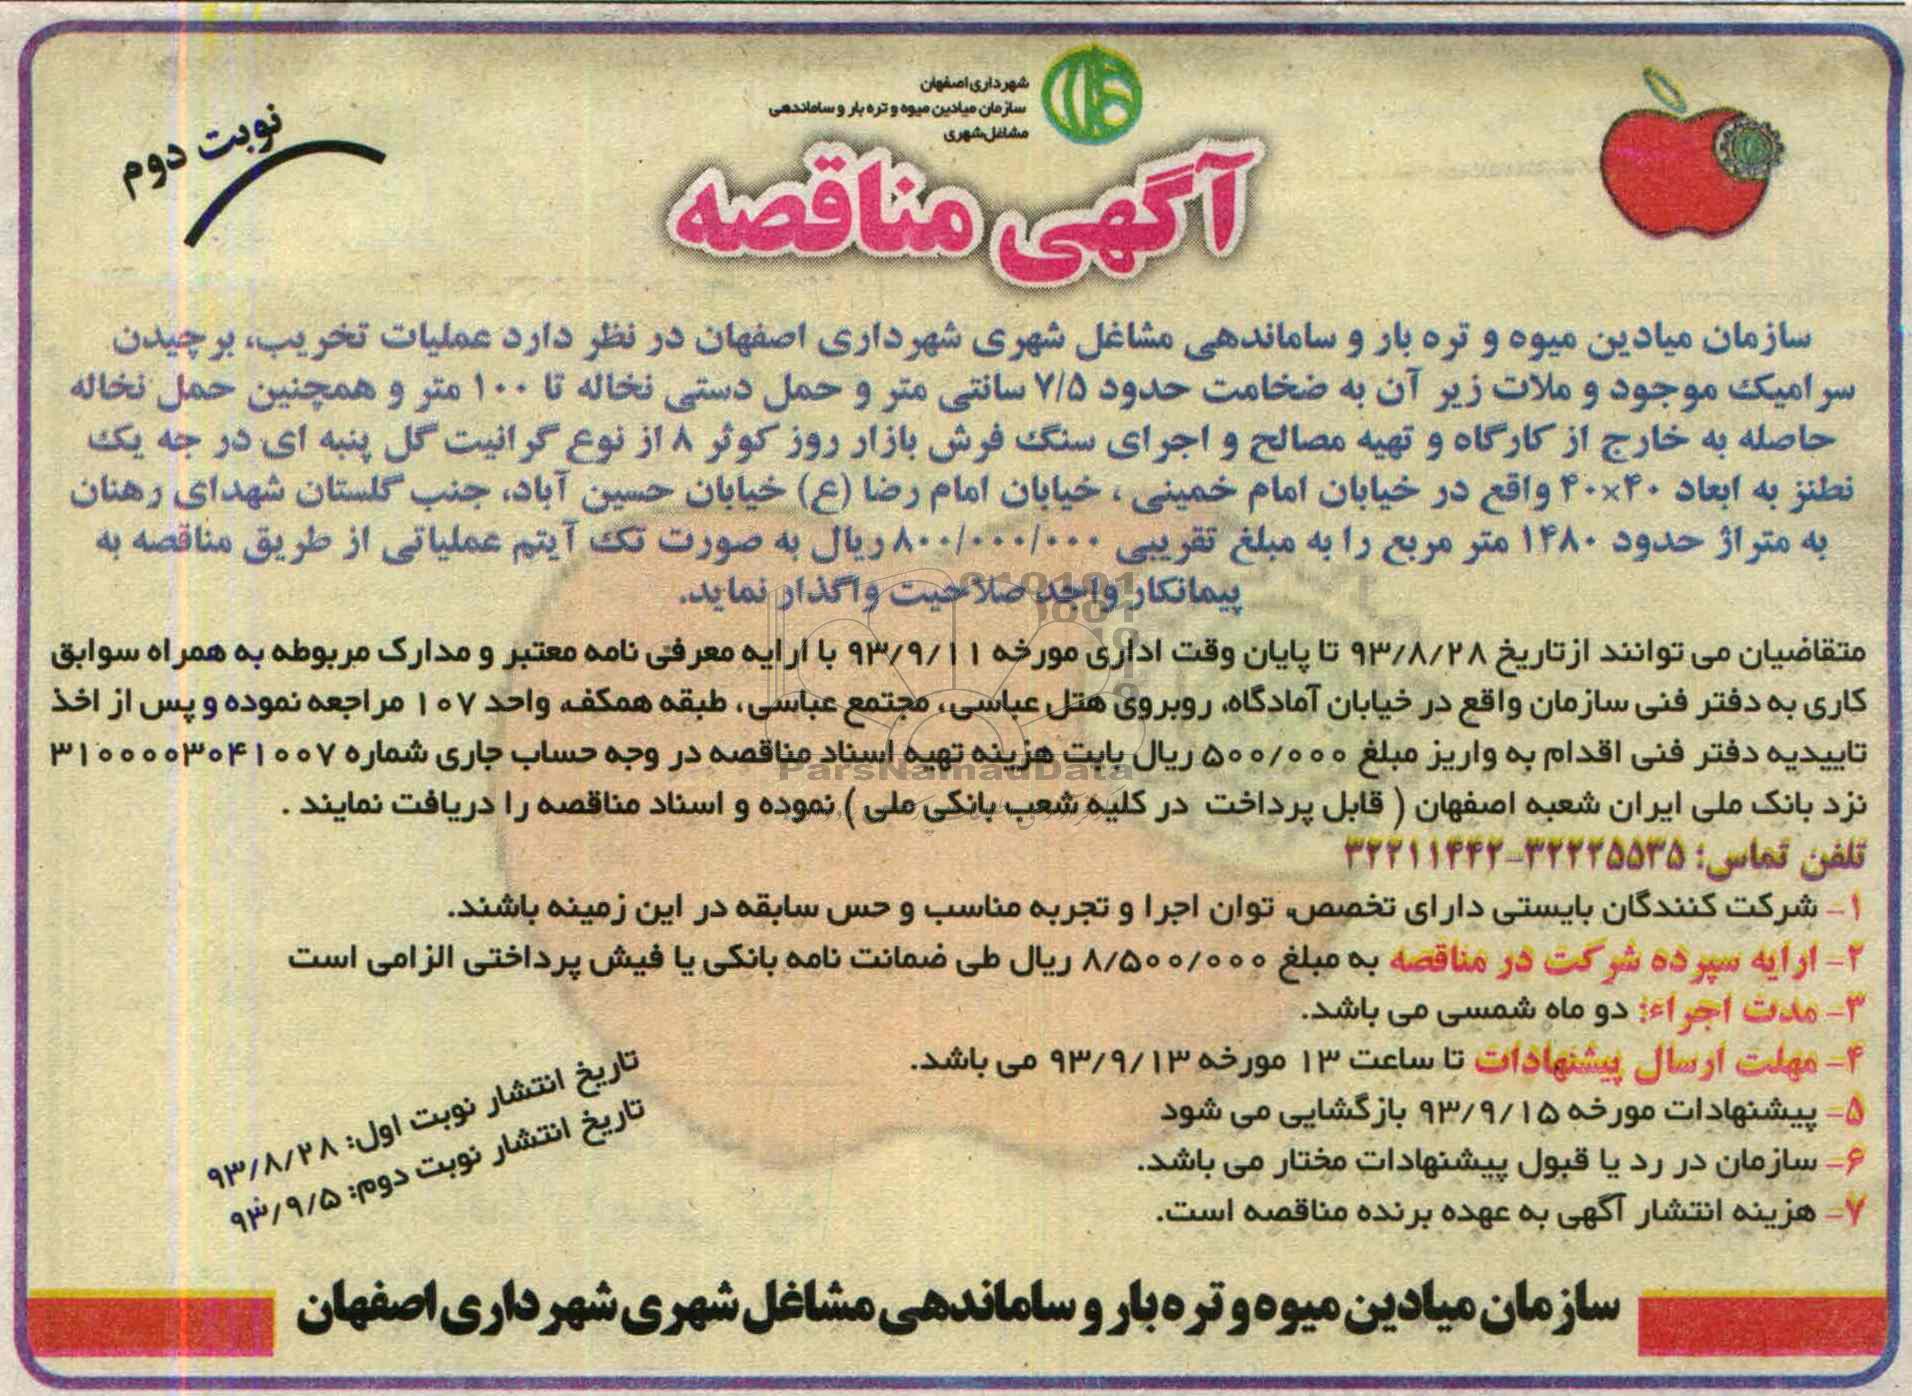 شهرداری اصفهان
سازمان میادین میوه و تره بار و ساماندهی
مشاغل شهری
نوبت دوم
آگهی مناقصه
سازمان میادین میوه و تره بار و ساماندهی مشاغل شهری شهرداری اصفهان در نظر دارد عملیات تخریب، برچیدن
سرامیک موجود و ملات زیر آن به ضخامت حدود ۷/۵ سانتی متر و حمل دستی نخاله تا ۱۰۰ متر و همچنین حمل نخاله
حاصله به خارج از کارگاه و تهیه مصالح و اجرای سنگ فرش بازار روز کوثر ۸ از نوع گرانیت گل پنبه ای در جه یک
نطنز به ابعاد ۴۰×۴۰ واقع در خیابان امام خمینی ، خیابان امام رضا (ع) خیابان حسین آباد، جنب گلستان شهدای رهنان
به متراژ حدود ۱۴۸۰ متر مربع را به مبلغ تقریبی ۸۰۰/۰۰۰/۰۰۰ ریال به صورت تک آیتم عملیاتی از طریق مناقصه به
پیمانکار واجد صلاحیت واگذار نماید.
متقاضیان می توانند ازتاریخ ۹۳/۸/۲۸ تا پایان وقت اداری مورخه ۹۳/۹/۱۱ با ارایه معرفی نامه معتبر و مدارک مربوطه به همراه سوابق
کاری به دفتر فنی سازمان واقع در خیابان آمادگاه، روبروی هتل عباسی، مجتمع عباسی، طبقه همکف، واحد ۱۰۷ مراجعه نموده و پس از اخذ
تاییدیه دفتر فنی اقدام به واریز مبلغ ۵۰۰/۰۰۰ ریال بابت هزینه تهیه اسناد مناقصه در وجه حساب جاری شماره ۳۱۰۰۰۰۳۰۴۱۰۰۷
نزد بانک ملی ایران شعبه اصفهان ( قابل پرداخت در کلیه شعب بانکی ملی ) نموده و اسناد مناقصه را دریافت نمایند .
تلفن تماس: ۳۲۲۲۵۵۳۵-۳۲۲۱۱۴۴۲
۱- شرکت کنندگان بایستی دارای تخصص، توان اجرا و تجربه مناسب و حس سابقه در این زمینه باشند.
۲- ارایه سپرده شرکت در مناقصه به مبلغ ۸/۵۰۰/۰۰۰ ریال طی ضمانت نامه بانکی یا فیش پرداختی الزامی است
۳- مدت اجراء: دو ماه شمسی می باشد.
۴- مهلت ارسال پیشنهادات تا ساعت ۱۳ مورخه ۹۳/۹/۱۳ می باشد.
۵- پیشنهادات مورخه ۹۳/۹/۱۵ بازگشایی می شود
۶- سازمان در رد یا قبول پیشنهادات مختار می باشد.
۷- هزینه انتشار آگهی به عهده برنده مناقصه است.
تاریخ انتشار نوبت اول: ۹۳/۸/۲۸
تاریخ انتشار نوبت دوم: ۹۳/۹/۵
سازمان میادین میوه و تره بار و ساماندهی مشاغل شهری شهرداری اصفهان
ParsNamadData